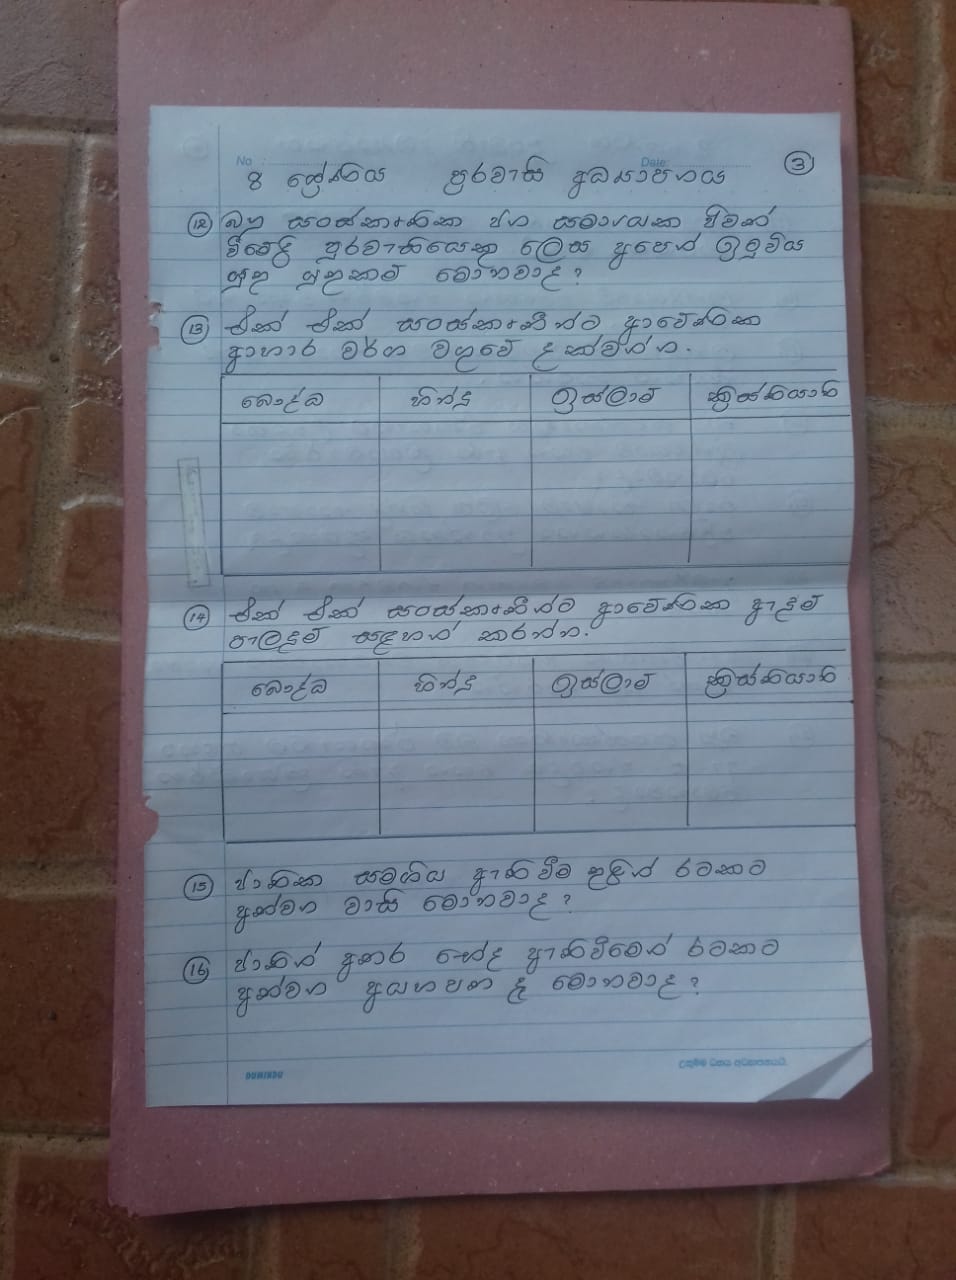 No Date: ③
8 ශ්‍රේණිය පුරවැසි අධ්‍යාපනය
⑫ බහු සංස්කෘතික ජන සමාජයක ජීවත්
වීමේදී පුරවැසියෙකු ලෙස අපෙන් ඉටුවිය
යුතු යුතුකම් මොනවාද?
⑬ එක් එක් සංස්කෘතීන්ට ආවේණික
ආහාර වර්ග වගුවේ දක්වන්න.
බෞද්ධ හින්දු ඉස්ලාම් ක්‍රිස්තියානි
⑭ එක් එක් සංස්කෘතීන්ට ආවේණික ඇඳුම්
පැලඳුම් සඳහන් කරන්න.
බෞද්ධ හින්දු ඉස්ලාම් ක්‍රිස්තියානි
⑮ ජාතික සමගිය ඇතිවීම තුළින් රටකට
අත්වන වාසි මොනවාද?
⑯ ජාතීන් අතර භේද ඇතිවීමෙන් රටකට
අත්වන අයහපත දෑ මොනවාද?
DUMINDU උතුම්ම ධනය අධ්‍යාපනයයි.